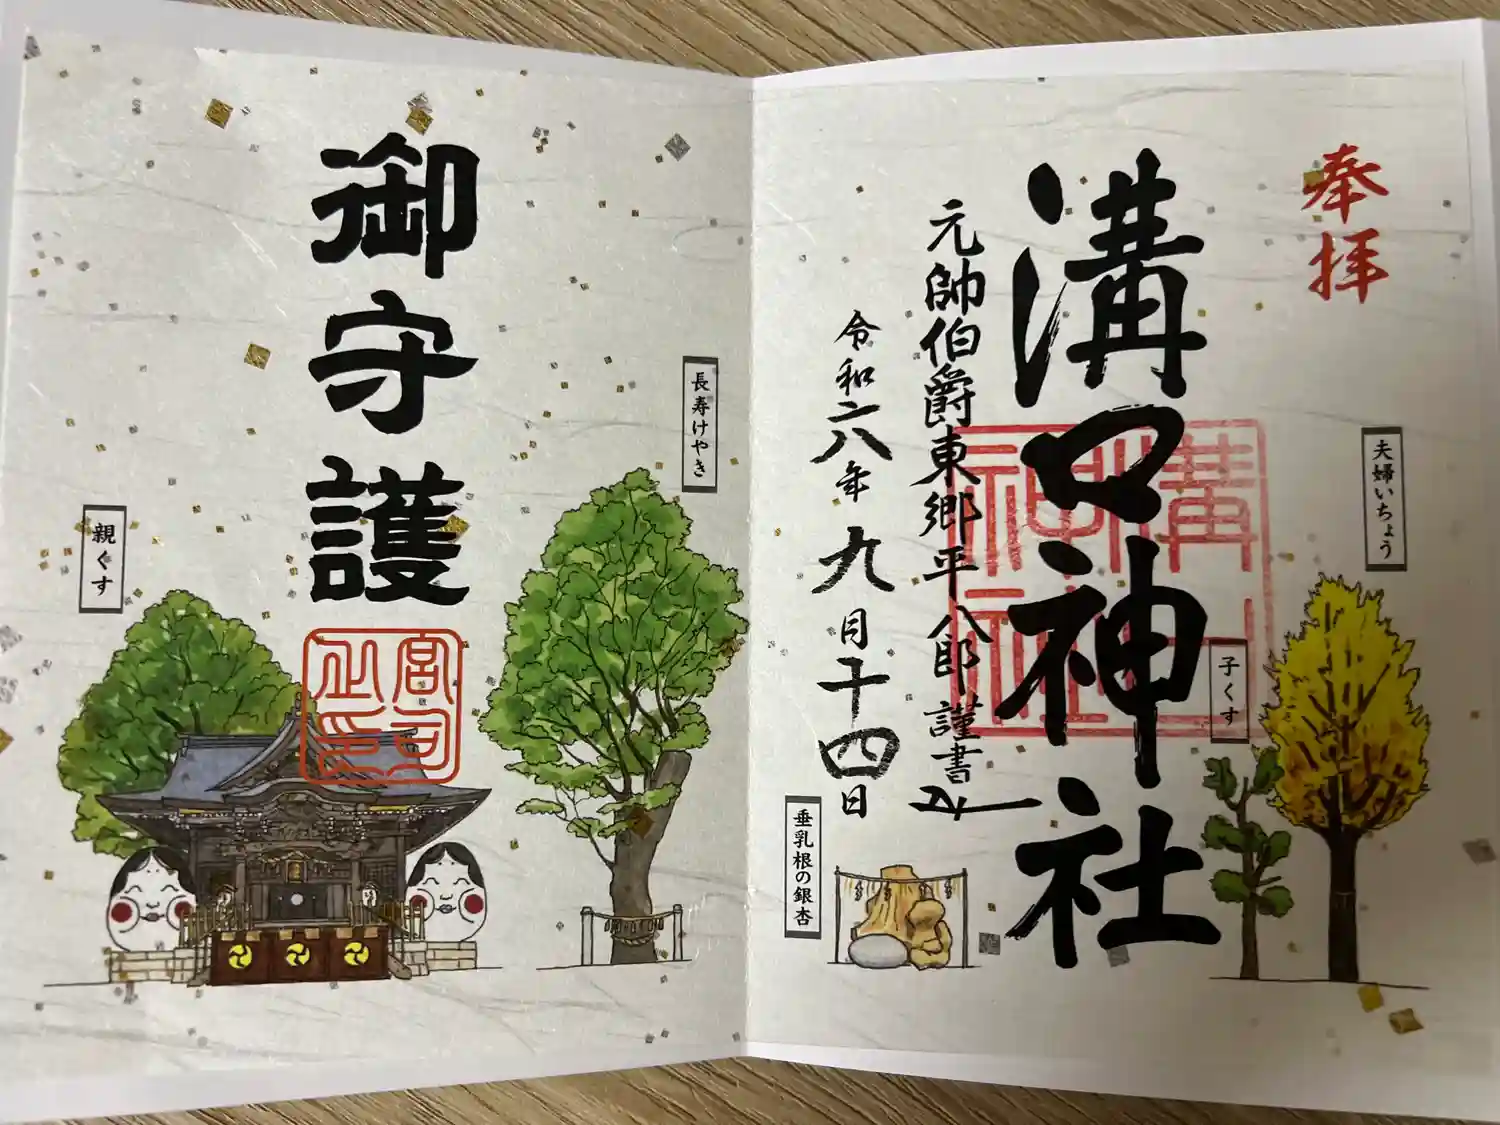 奉拝
夫婦いちょう
子くす
溝口神社
溝口
神社
元帥伯爵東郷平八郎謹書
令和六年九月十四日
垂乳根の銀杏
長寿けやき
御守護
宮司
之印
親ぐす